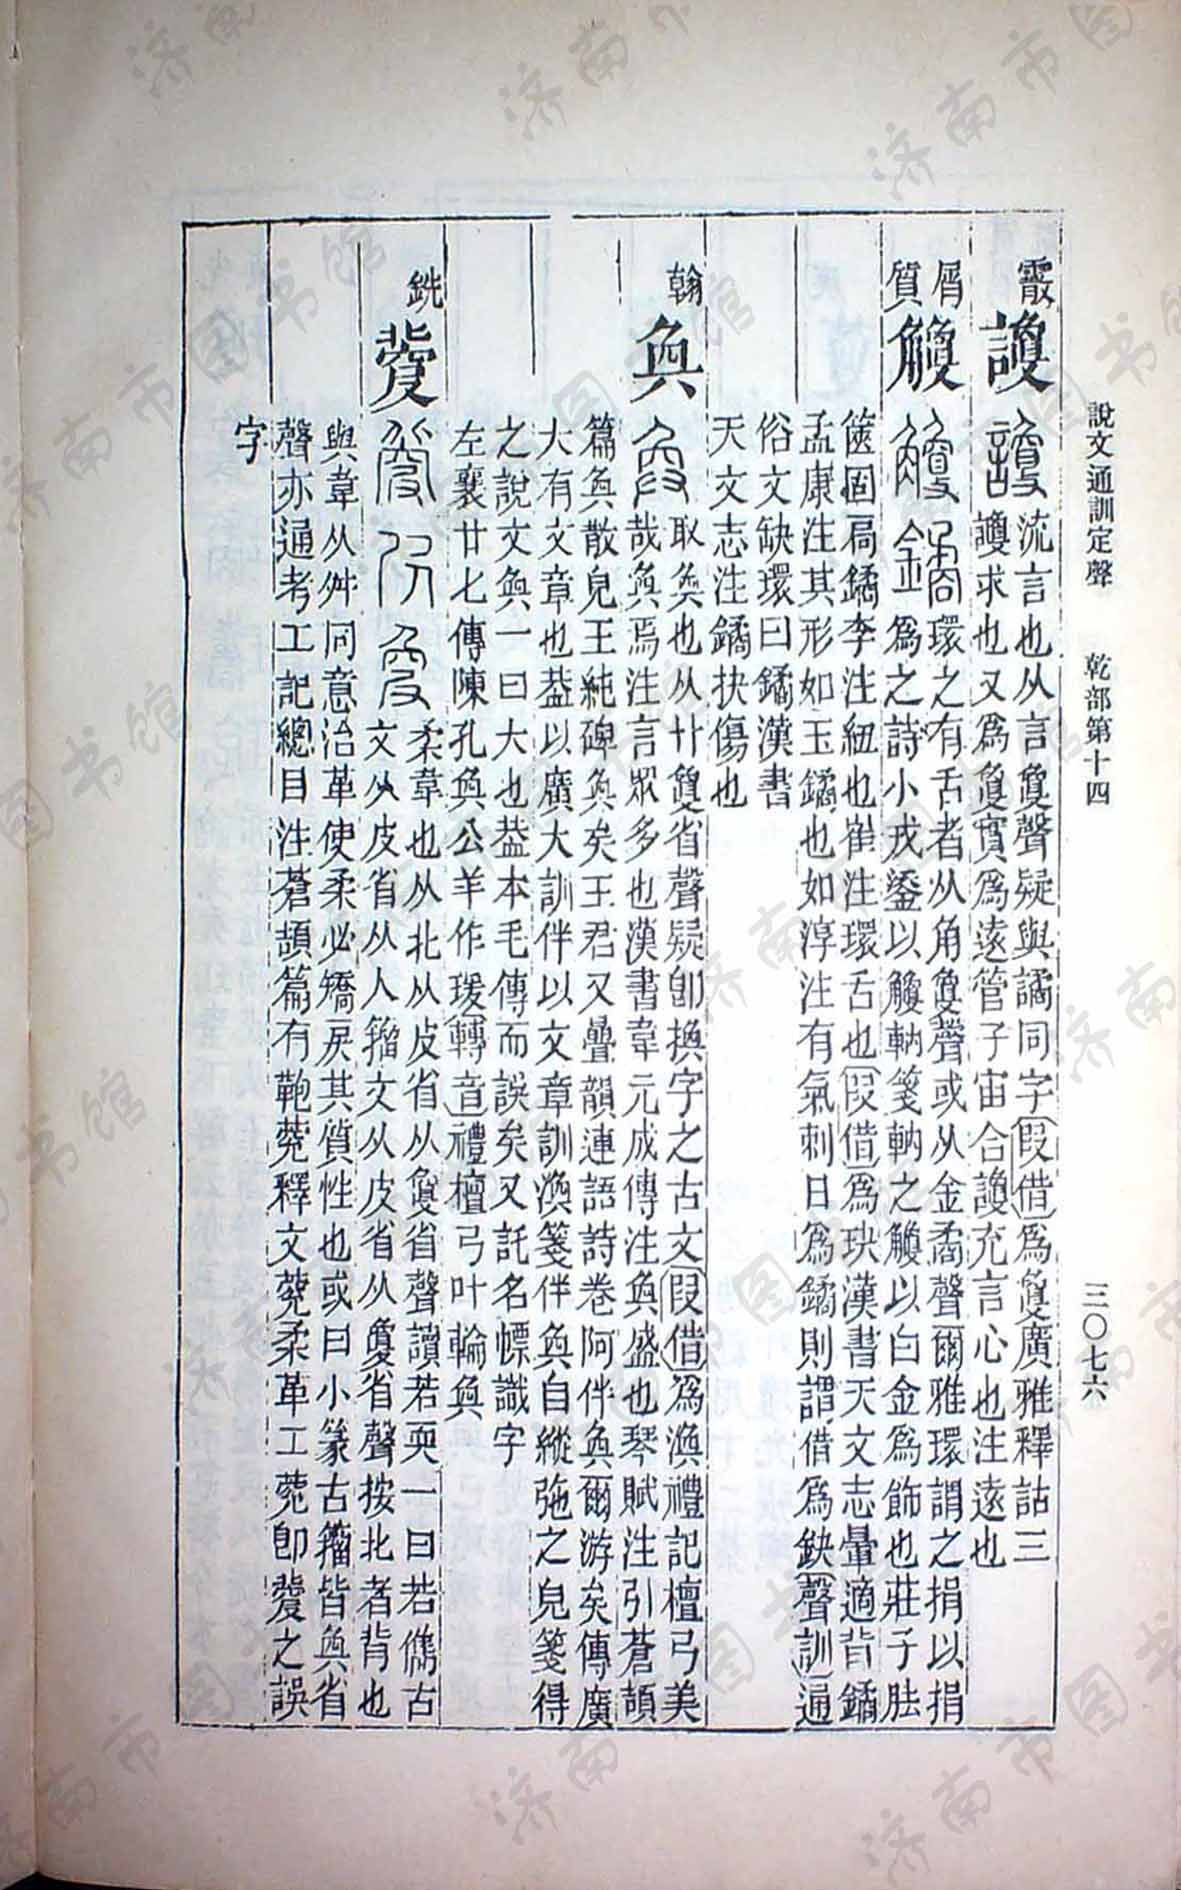 說文通訓定聲 乾部第十四 三〇七六
霰
流言也从言敻聲疑與譎同字叚借爲敻廣雅釋詁三
讂求也又爲敻實爲遠管子宙合讂充言心也注遠也
屑
質
觼
環之有舌者从角敻聲或从金矞聲爾雅環謂之捐以捐
爲之詩小戎鋈以觼軜箋軜之觼以白金爲飾也莊子胠
篋固扃鐍李注紐也崔注環舌也叚借爲玦漢書天文志暈適背鐍
孟康注其形如玉鐍也如淳注有氣刺日爲鐍則謂借爲鈌聲訓通
俗文缺環曰鐍漢書
天文志注鐍抉傷也
翰
奐
取奐也从廾敻省聲疑卽換字之古文叚借爲渙禮記檀弓美
哉奐焉注言眾多也漢書韋元成傳注奐盛也琴賦注引蒼頡
篇奐散皃王純碑奐矣王君又疊韻連語詩卷阿伴奐爾游矣傳廣
大有文章也葢以廣大訓伴以文章訓渙箋伴奐自縱弛之皃箋得
之說文奐一曰大也葢本毛傳而誤矣又託名幖識字
左襄廿七傳陳孔奐公羊作瑗轉音禮檀弓叶輪奐
銑
柔韋也从北从皮省从敻省聲讀若耎一曰若儁古
文从皮省从人籀文从皮省从敻省聲按北者背也
與韋从舛同意治革使柔必矯戾其質性也或曰小篆古籀皆奐省
聲亦通考工記總目注蒼頡篇有鞄㼱釋文㼱柔革工㼱卽㼱之誤
字